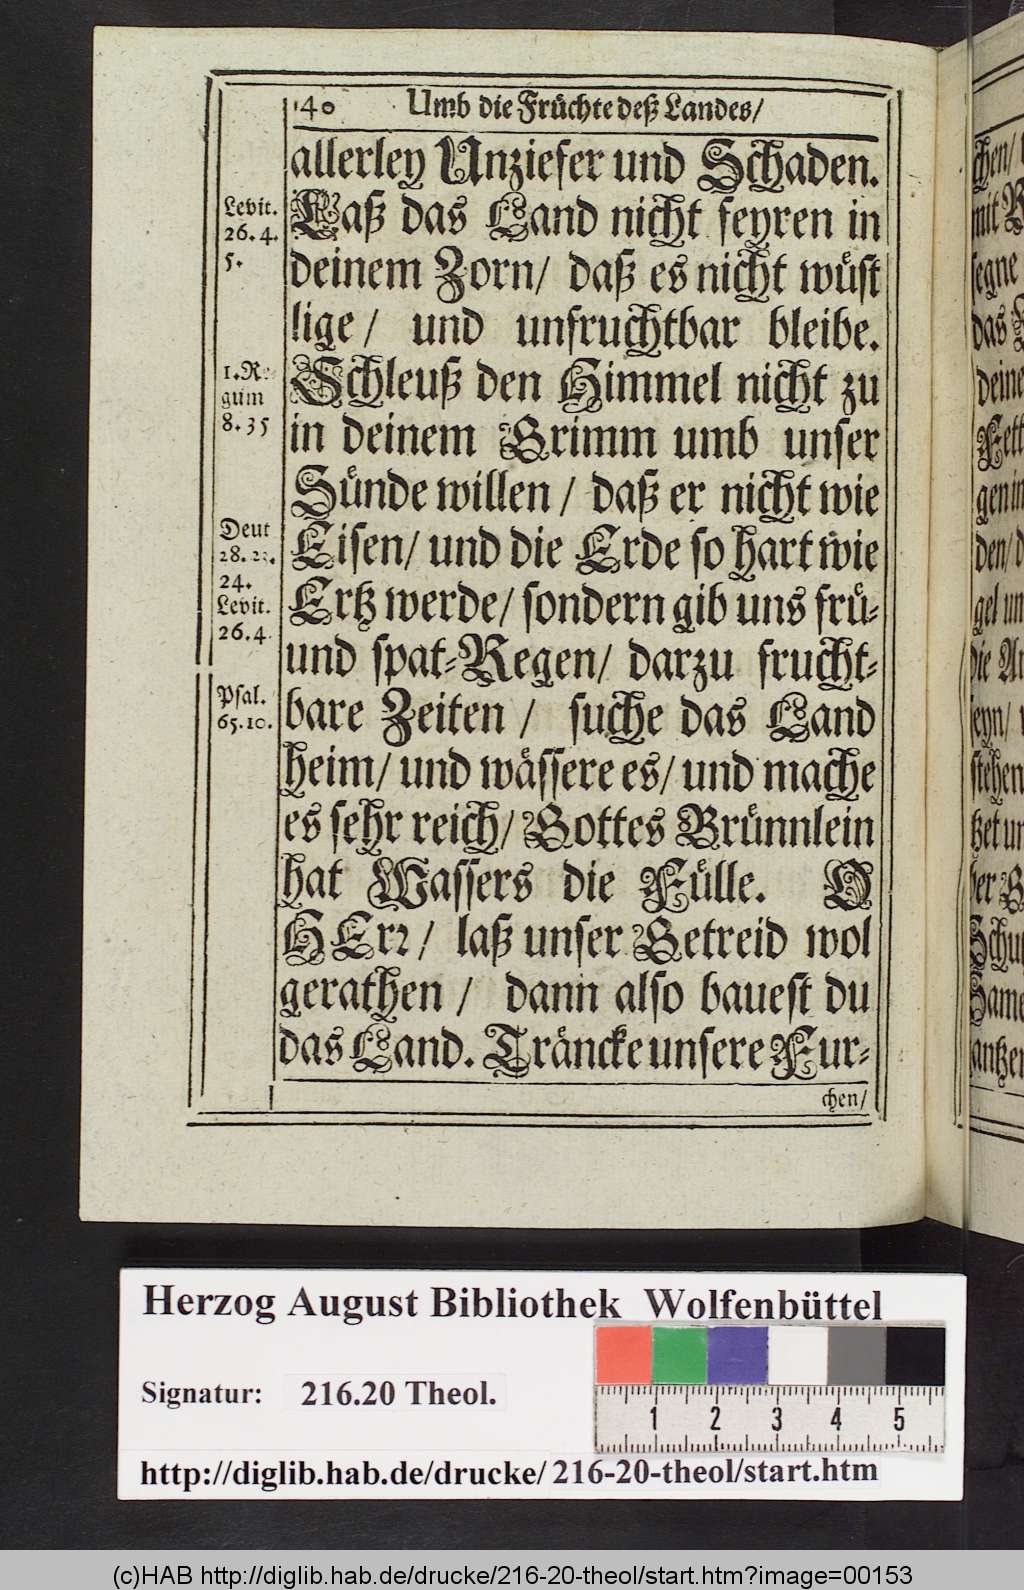 140 Umb die Früchte deß Landes/
allerley Unziefer und Schaden.
Levit.
26. 4.
5.
Laß das Land nicht feyren in
deinem Zorn/ daß es nicht wüst
lige/ und unfruchtbar bleibe.
1. Re-
gum
8. 35
Schleuß den Himmel nicht zu
in deinem Grimm umb unser
Sünde willen/ daß er nicht wie
Deut
28. 23.
24.
Levit.
26. 4
Eisen/ und die Erde so hart wie
Ertz werde/ sondern gib uns frü-
und spat-Regen/ darzu frucht-
Psal.
65. 10.
bare Zeiten/ suche das Land
heim/ und wässere es/ und mache
es sehr reich/ Gottes Brünnlein
hat Wassers die Fülle. O
HErr/ laß unser Getreid wol
gerathen/ dann also bauest du
das Land. Träncke unsere Fur-
chen/
chen/
mit
segne
das
deine
Fett
gen in
den/
gel un
die
seyn/
stehen
tzet un
der
Schu
Same
antzen
Herzog August Bibliothek Wolfenbüttel
Signatur: 216.20 Theol.
1 2 3 4 5
http://diglib.hab.de/drucke/216-20-theol/start.htm
(c)HAB http://diglib.hab.de/drucke/216-20-theol/start.htm?image=00153